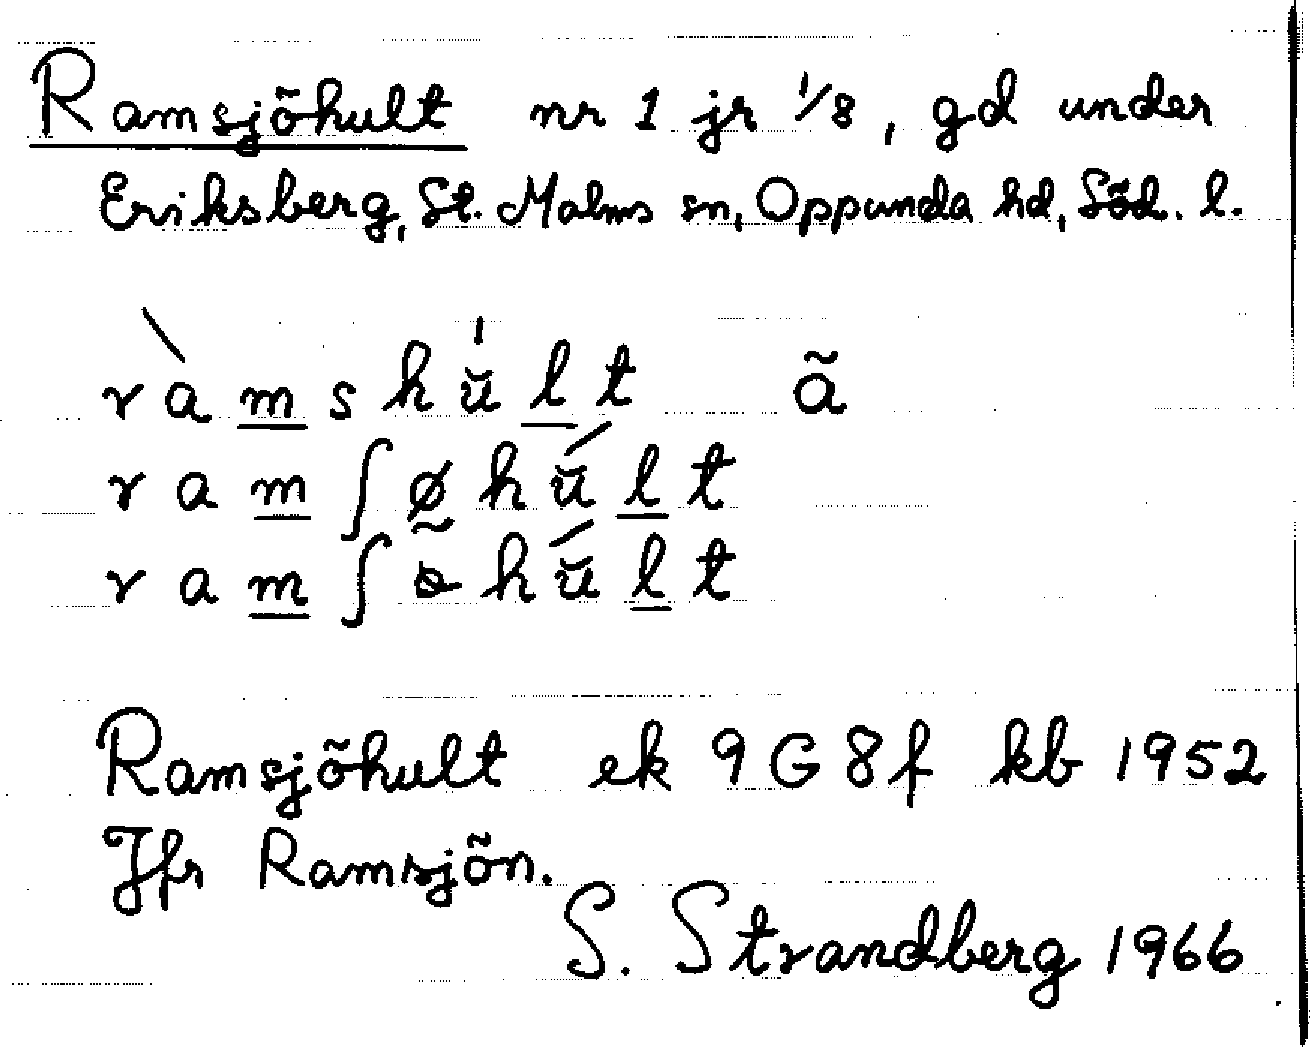 Ramsjöhult nr 1 jr 1/8, gd under
Eriksberg, St. Malms sn, Oppunda hd, Söd. l.
ràm̲shŭ̍l̲t ã
ram̲ʃø̰hŭ́l̲t
ram̲ʃɵhŭ́l̲t
Ramsjöhult ek 9G8f kb 1952
Jfr Ramsjön.
S. Strandberg 1966